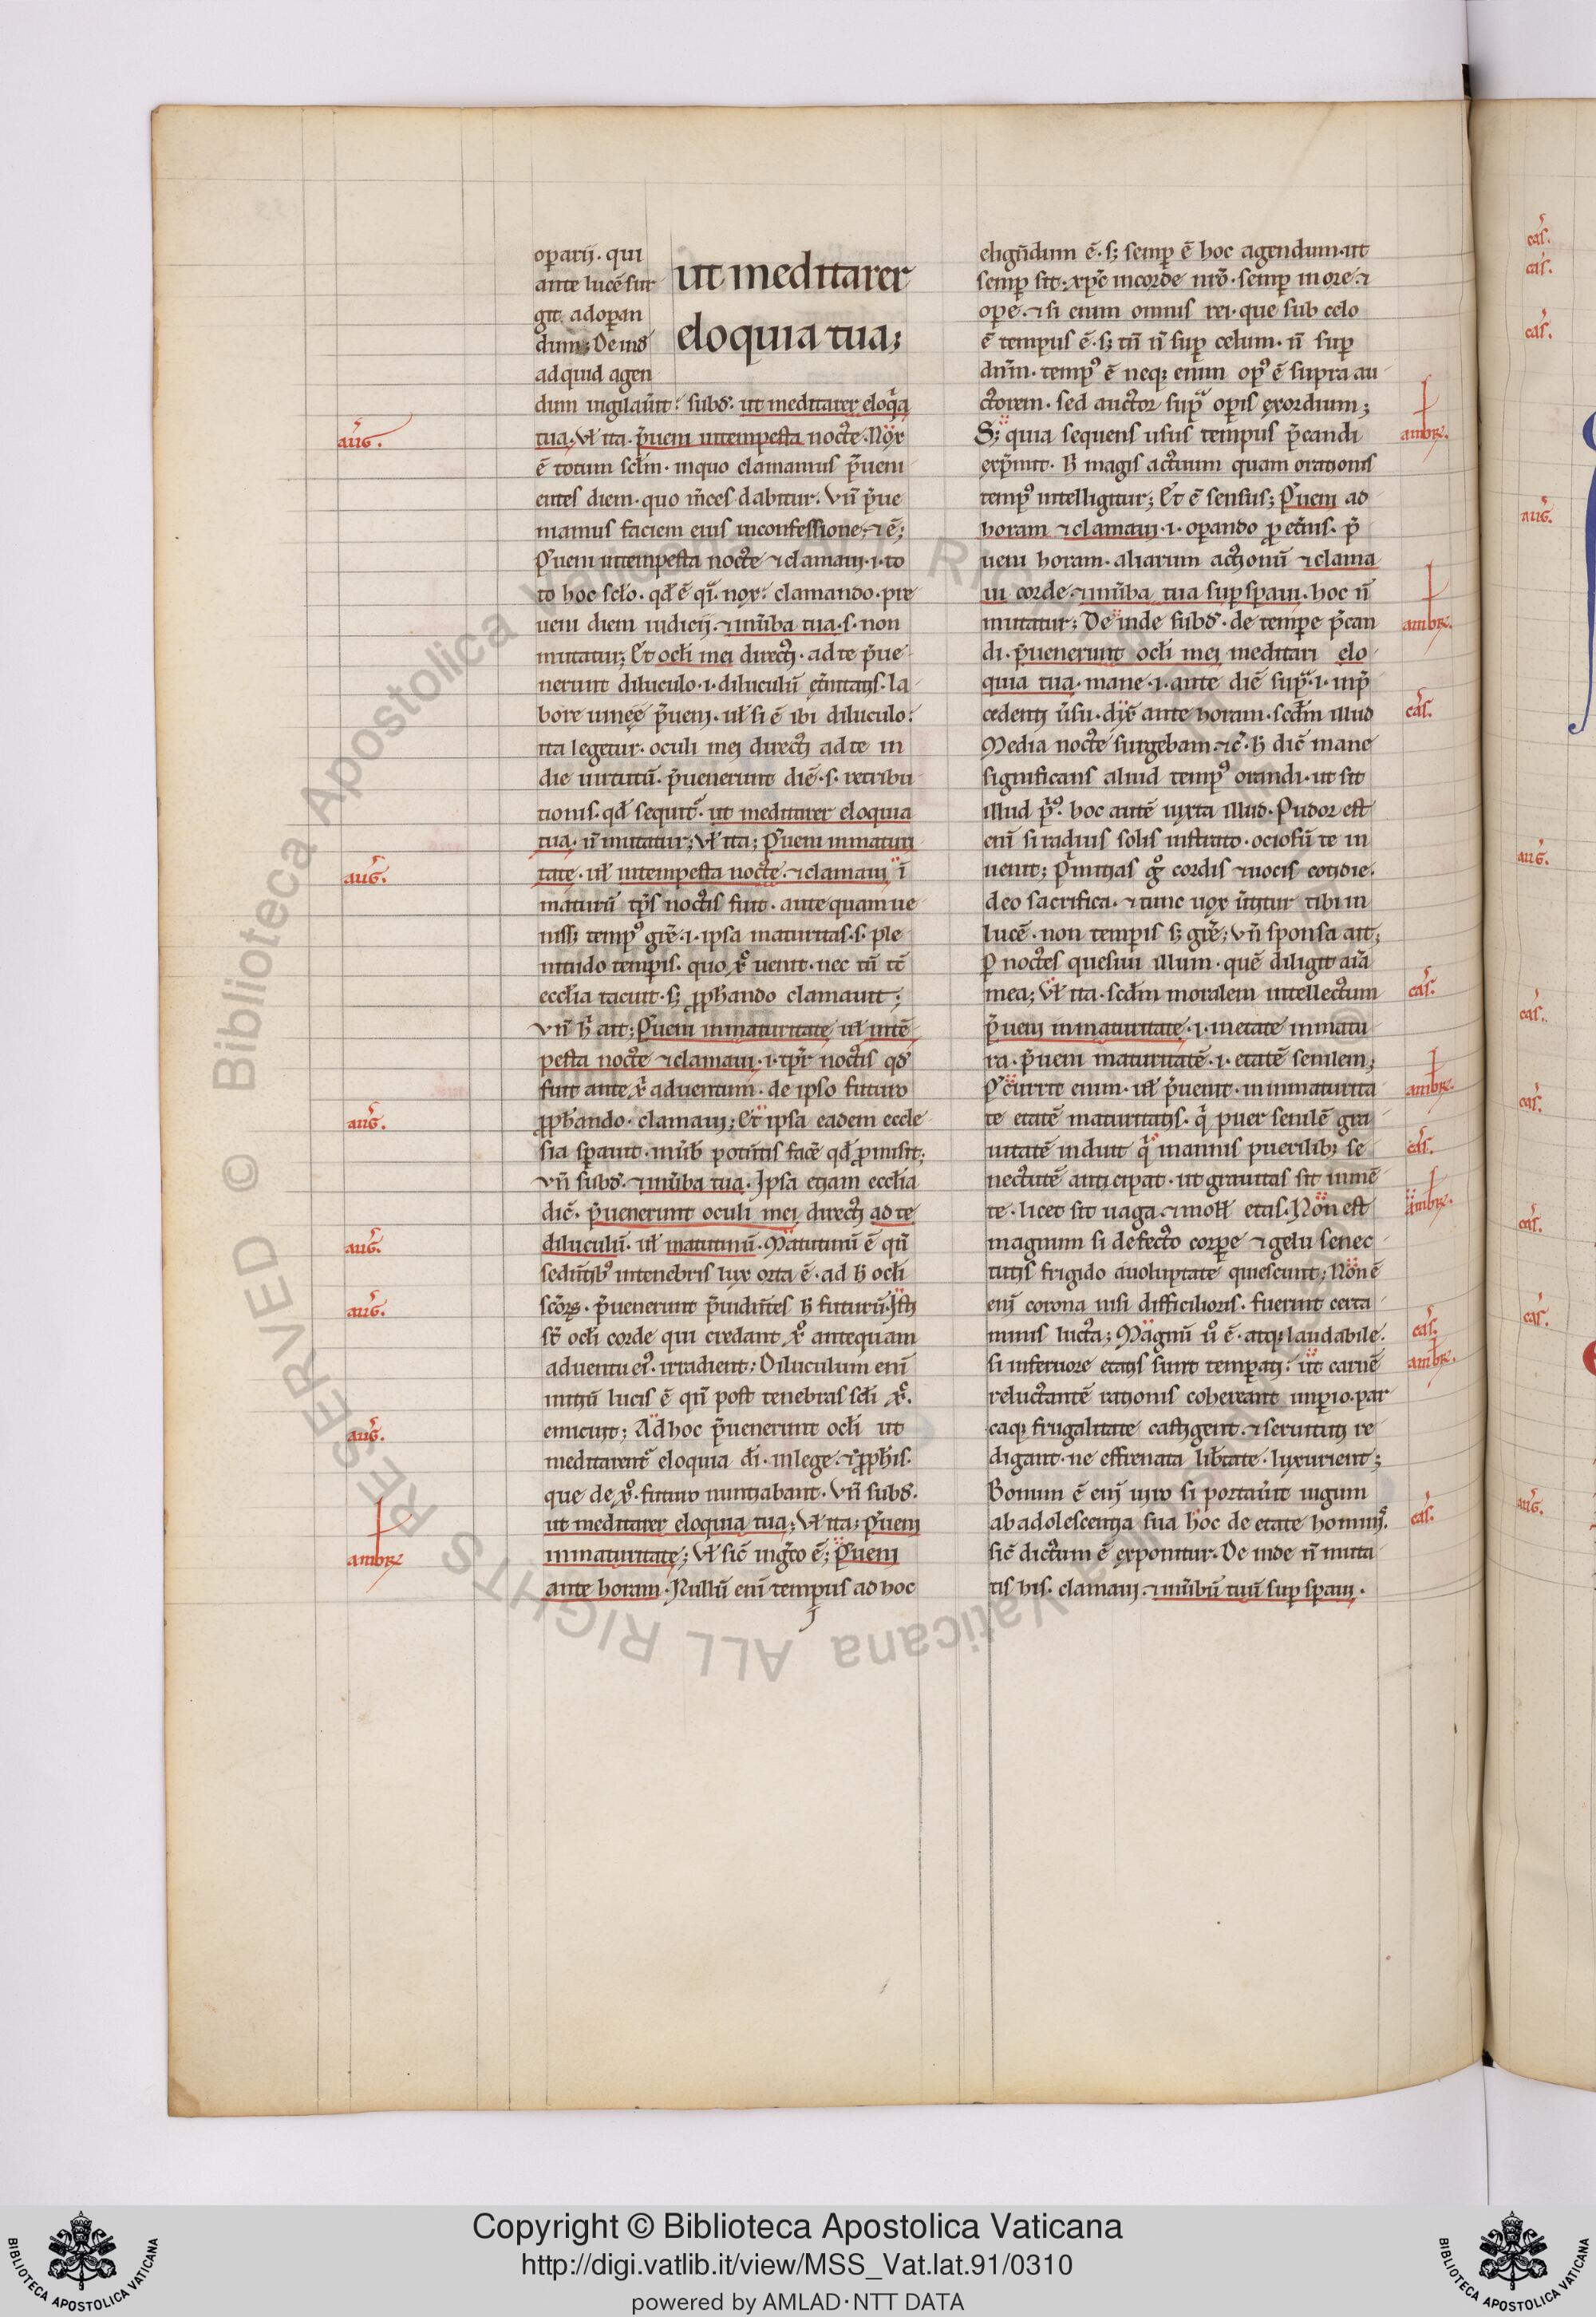 oparij. qui
ante lucē sur
git adopan
dum; De ind
ad quid agen
ut meditarer
eloquia tua;
dum uigilauīt: subd. ut meditarer eloq̄a
aug.
tua; Vl ita. p̄ueni intempesta nocte. Nox
ē totum sclm. inquo clamamus p̄ueni
entes diem. quo m̄ces dabitur. Vn̄ p̄ue
niamus faciem eius inconfessione. ⁊ ē;
P̄ueni intempesta nocte ⁊ clamaui. i. to
to hoc sclo. qd ē q̄i. nox: clamando. pre
ueni diem iudicij. ⁊ inūba tua. s. non
mutatur; Et ocli mei directi. ad te p̄ue
nerunt diluculo. i. diluculū et̄nitatis. la
bore uineę p̄ueni. ul si ē ibi diluculo:
ita legetur. oculi mei directi ad te in
die uirtutū. p̄uenerunt diē. s. retribu
tionis. qd sequit᷑. ut meditarer eloquia
tua. n̄ mutatur; Vl ita; P̄ueni inmaturi
aug.
tate. ul intempesta nocte. ⁊ clamaui ī
maturū tp̄s noctis fuit. ante quam ue
niss; temp᷒ grē. i. ipsa maturitas. s. ple
nitudo tempis. quo xp̄ uenit. nec tū tc̄
ecclia tacuit. s; pphando clamauit;
Vn̄ h̄ ait; P̄ueni inmaturitate ul intē
pesta nocte ⁊ clamaui. i. tp̄r noctis qd
fuit ante xp̄i aduentum. de ipso futuro
aug.
pphando. clamaui; Et ipsa eadem eccle
sia spauit. inūb potntis facē qd pmisit;
Vn̄ subd. ⁊ inūba tua. Ipsa etiam ecclia
dic̄. p̄uenerunt oculi mei directi ad te
aug.
diluculū. ul matutinū. Matutinū ē qn̄
sedn̄tib᷒ intenebris lux orta ē. ad h̄ ocli
aug.
scōꝝ. p̄uenerunt p̄uidn̄tes h̄ futurū. Isti
st̄ ocli corde qui credant xp̄o antequam
aduentu ei᷒. irradient; Diluculum enī
initiū lucis ē qn̄ post tenebras scli xp̄c.
aug.
emicuit; Ad hoc p̄uenerunt ocli ut
meditarent᷑ eloquia di. inlege. ⁊ pphis.
que de xp̄o. futuro nuntiabant. Vn̄ subd.
ut meditarer eloquia tua; Vl ita; P̄ueni
ambr
inmaturitate; Vl sic̄ ingr̄co ē; P̄ueni
ante horam. Nullū enī tempus ad hoc
elign̄dum ē. s; semp ē hoc agendum. ut
semp sit; xp̄c incorde nrō. semp in ore. ⁊
ope. ⁊ si enim omnis rei. que sub celo
ē tempus ē. s; tn̄ n̄ sup celum. n̄ sup
dn̄m. temp᷒ ē neq; enim op᷒ ē supra au
ctorem. sed auctor sup̄ opis exordium;
ambr.
S; quia sequens usus tempus p̄candi
exp̄mit. h̄ magis actuum quam orationis
temp᷒ intelligitur; Et ē sensus; P̄ueni ad
horam ⁊ clamaui. i. opando p et̄nis. p̄
ueni horam. aliarum actionū ⁊ clama
ambr.
ui corde. ⁊ inūba tua sup spaui. hoc n̄
mutatur; De inde subd. de tempe p̄can
di. p̄uenerunt ocli mei meditari elo
quia tua. mane. i. ante diē sup̄. i. inp̄
cas.
cedenti ūsu. dix̄ ante horam. scdm illud
Media nocte surgebam. ⁊ c̄. h̄ dic̄ mane
significans aliud temp᷒ orandi. ut sit
illud p̄᷒. hoc autē iuxta illud. Pudor est
enī si radius solis instrato. ociosū te in
uenit; P̄mitias gͦ cordis ⁊ uocis cotidie.
deo sacrifica. ⁊ tunc uox ūtitur tibi in
lucē. non tempis s; grē; Vn̄ sponsa ait;
P noctes quesiui illum. quē diligit aīa
cas.
mea; Vl ita. scdm moralem intellectum
p̄ueni inmaturitate. i. inetate inmatu
ra. p̄ueni maturitatē. i. etatē senilem;
ambr.
P̄currit enim. ul p̄uenit. in inmaturita
te etatē maturitatis. q̄ puer senilē gra
cas.
uitatē induit q̄ inannis puerilib; se
nectutē anticipat. ut grauitas sit inmē
ambr.
te. licet sit uaga. ⁊ moll etas. Non est
magnum si defecto corpe ⁊ gelu senec
tutis frigido auoluptate quiescunt; Non ē
enī corona nisi difficilioris. fuerint certa
cas.
minis lucta; Magnū ūͦ ē. atq; laudabile.
ambr.
si inferuore etatis sunt temperati: ut carnē
reluctantē rationis cohereant inpio. par
caq; frugalitate castigent. ⁊ seruitiis re
digant. ne effrenata lib̄tate. luxurient;
Bonum ē enī uiro si portau̅it iugum
cas.
ab adolescentia sua hoc de etate hominis.
sic̄ dictum ē exponitur. De inde n̄ muta
tis his. clamaui. ⁊ inūbū tuū sup spaui.
cas.
cas.
cas.
aug.
aug.
cas.
cas.
cas.
cas.
aug.
© Biblioteca Apostolica Vaticana ALL RIGHTS RESERVED
Copyright © Biblioteca Apostolica Vaticana
http://digi.vatlib.it/view/MSS_Vat.lat.91/0310
powered by AMLAD·NTT DATA
BIBLIOTECA APOSTOLICA VATICANA
BIBLIOTECA APOSTOLICA VATICANA